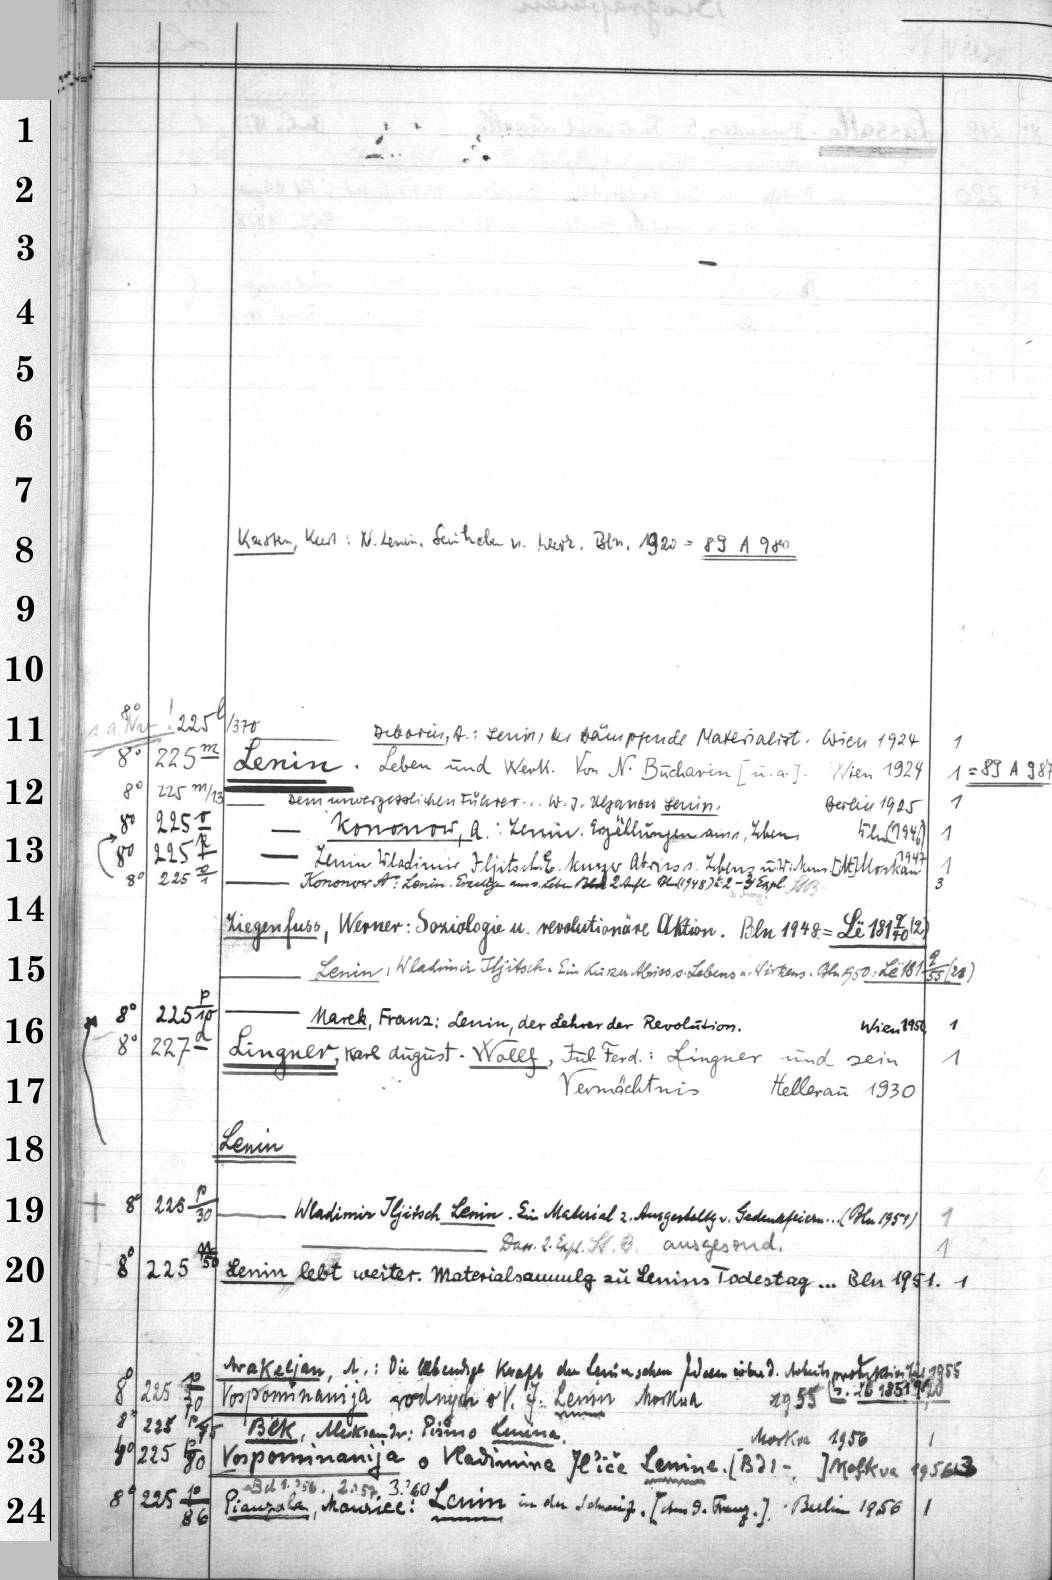 1
2
3
4
5
6
7
8 Karsten, Kurt: N. Lenin. Sein Leben u. Werk. Bln. 1920 = 89 A 980
9
10
8° s. a. Nr ! 225 l/370
11 Deborin, A.: Lenin, der kämpfende Materialist. Wien 1924 1
8° 225 m Lenin. Leben und Werk. Von N. Bucharin [u.a.]. Wien 1924 1 = 89 A 987
12 8° 225 m/13 Dem unvergesslichen Führer... W. J. Uljanow Lenin. Berlin 1925 1
8° 225 Kononow, A.: Lenin. Erzählungen aus s. Leben Bln [1946] 1
13 8° 225 Lenin Wladimir Iljitsch. E. kurzer Abriss s. Lebens u. Wirkens. Moskau 1947 1
8° 225 Kononow A.: Lenin. Leben 2. Aufl. Bln (1948) Ex. 2-3 3
14 Ziegenfuss, Werner: Soziologie u. revolutionäre Aktion. Bln 1948 = Lë 181 q/70 (2)
15 Lenin, Wladimir Iljitsch. Ein kurzer Abriss s. Lebens u. Wirkens. Bln 1950: Lë 181 q/55
16 8° 225 p/10 Marek, Franz: Lenin, der Lehrer der Revolution. Wien 1950 1
8° 227 d Lingner, Karl August - Wolff, Jul. Ferd.: Lingner und sein 1
17 Vermächtnis Hellerau 1930
18 Lenin
19 8° 225 p/30 Wladimir Iljitsch Lenin. Ein Material z. Ausgestaltg v. Gedenkfeiern... (Bln 1951) 1
Dass. 2. Expl. St. B. ausgesond. 1
20 8° 225 /50 Lenin lebt weiter. Materialsammlg zu Lenins Todestag ... Bln 1951. 1
21
Arakeljan, A.: Die lebendige Kraft der Leninschen Ideen über d. Arbeitsproduktivität 1955
22 8° 225 p/70 Vospominanija rodnych o V. I. Lenin Moskva 1955
8° 225 p/75 Bek, Aleksandr: Pis'mo Lenina. Moskva 1956 1
23 8° 225 p/80 Vospominanija o Vladimire Il'iče Lenine. [Bd 1- ] Moskva 1956 3
Bd 1. '56. 2. '57. 3. '60
24 8° 225 p/86 Pianzola, Maurice: Lenin in der Schweiz. [Aus d. Franz.]. Berlin 1956 1